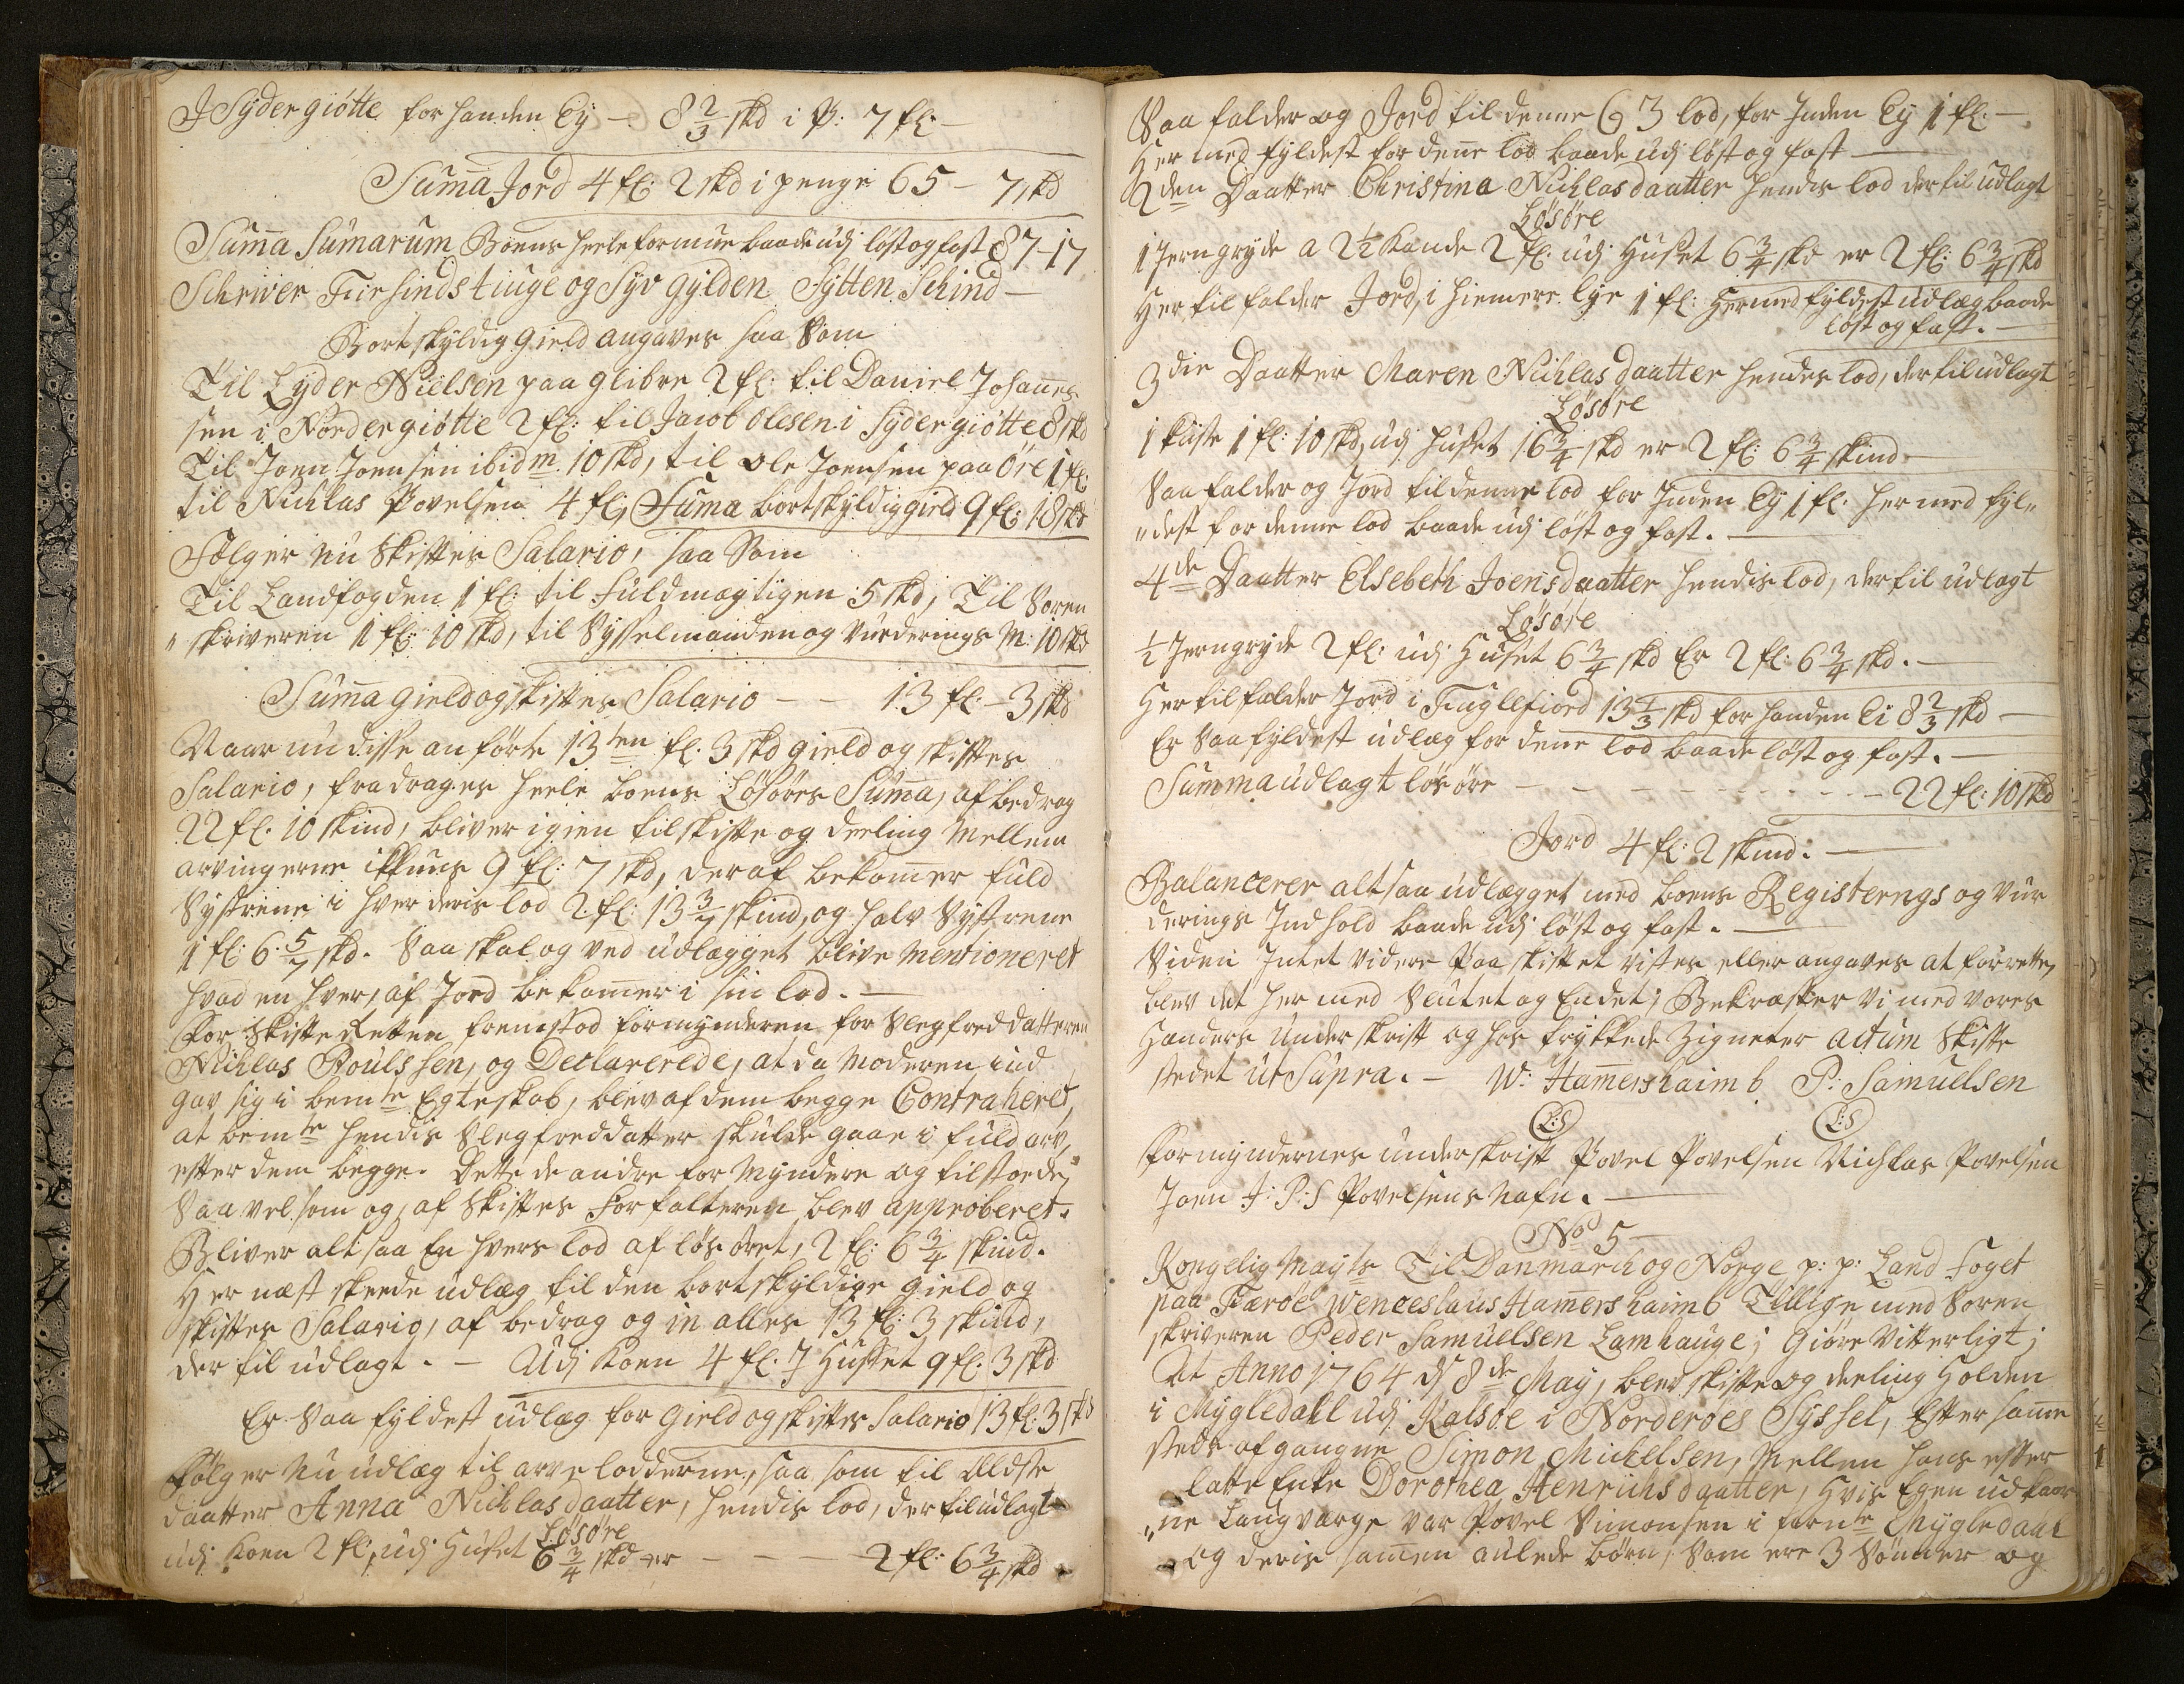 I Sydergiøtte forhanden Ey — 8 2/3 skd i P: 7 fl: —
Summa Jord 4 fl: 2 skd i penge 65 - 7 skd
Summa Sumarum Boens heele formue baade udj løst og fast 87-17
Schriver Fiirsindstiuge og Syv gylden Sytten Schind —
Bortskyldig gield angaves saa Som
Til Lyder Nielsen paa glibre 2 fl: til Daniel Johannes
sen i Nordergiøtte 2 fl: til Jacob Olesen i Sydergiøtte 8 skd
Til Joen Joensen ibidm 10 skd, til Ole Joensen paa Øre 1 fl:
til Nichlas Povelsen 4 fl; Suma bortskyldig gield 9 fl: 18 skd
Følger nu Skiftes Salario, saa Som
Til Landfogden 1 fl: til Fuldmægtigen 5 skd, Til Soren
" skriveren 1 fl: 10 skd, til Sysselmanden og Vurderings M: 10 skd
Summa gield og skiftes Salario — — 13 fl: - 3 skd
Naar nu disse anførte 13ten fl. 3 skd gield og skiftes
Salario, fradrages heele boens Løsøres Summa, af bedrag
22 fl. 10 skind, bliver igien til skifte og deeling Mellem
arvingerne ikkuns 9 fl: 7 skd, deraf bekommer fuld
Systrene i hver deris lod 2 fl: 13 3/7 skind, og halv Systrene
1 fl: 6 5/7 skd. Saa skal og ved udlægget blive mentioneret
hvad en hver, af Jord bekommer i sin lod. —
For Skifte Retten fremstod formynderen for Slegfreddatteren
Nichlas Poulssen, og Declarerede, at da Moderen ind
gav sig i bemte Egteskab, blev af dem begge Contraheret,
at bemte hendis Slegfreddatter skulde gaae i fuld arv,
efter dem begge. Dette de andre for Myndere og tilstoede,
Saa vel som og, af Skiftes Forfalteren blev approberet.
Bliver alt saa En hvers lod af løsøret, 2 fl: 6 3/4 skind.
Her næst skeede udlæg til den bortskyldige gield og
skiftes Salario, af bedrag og in alles 13 fl: 3 skind,
der til udlagt. — Udj Koen 4 fl. I Huset 9 fl. 3 skd
Er Saa fyldest udlæg for gield og skiftes Salario 13 fl: 3 skd
Følger nu udlæg til arve lodderne, saa som til Eldste
daatter Anna Nichlasdaatter, hendis lod, der til udlagt
Løsøre
udj Koen 2 fl:, udj Huset 6 3/4 skd er — — — 2 fl: 6 3/4 skd
Saa falder og Jord til denne og 3 lod, for Inden Ey 1 fl. —
Her med fyldest for denne lod baade udj løst og fast —
2den Daatter Christina Nichlasdaatter hendis lod der til udlagt
Løsøre
1 Jerngryde a 2 1/2 Kande 2 fl: udj Huset 6 3/4 skd er 2 fl: 6 3/4 skd
Her til falder Jord, i hiemere lye 1 fl: Hermed fyldest udlæg baade
løst og fast. —
3die Daatter Maren Nichlasdaatter hendes lod, der til udlagt
Løsøre
1 kiiste 1 fl: 10 skd, udj huset 16 3/4 skd er 2 fl: 6 3/4 skind
Saa falder og Jord til denne lod for Inden Ey 1 fl. her med fyl"
"dest for denne lod baade udj løst og fast. —
4de Daatter Elsebeth Joensdaatter hendis lod, der til udlagt
Løsøre
1/2 Jerngryde 2 fl: udj Huset 6 3/4 skd Er 2 fl: 6 3/4 skd. —
Her til falder Jord i Fuglefiord 13 1/3 skd for handen Ei 8 2/3 skd —
Er Saa fyldest udlæg for dene lod baade løst og fast. —
Summa udlagt løsøre — — — — — — 22 fl: 10 skd
Jord 4 fl: 2 skind. —
Balancerer alt saa udlægget med boens Registerings og Vur
derings Indhold baade udj løst og fast. —
Siden Intet videre Paa skiftet vistes eller angaves at forrette,
blev det her med Slutet og Endet; Bekræfter Vi med vores
Hænders Underskrift og hos trykkede Zigneter actum Skifte
stedet ut Supra. — W: Hamershaimb P: Samuelsen
L:S L:S
Formyndernes underskrift Povel Povelsen Nichlas Povelsen
Joen J: P: S Povelsens Nafn. —
No 5 —
Kongelig Mayts Til Danmarch og Norge p: p: Land Foget
paa Færöe Wenceslaus Hamershaimb Tillige med Soren
skriveren Peder Samuelsen Lamhauge; Giøre Vitterligt;
At Anno 1764 d 8de May, blev skifte og deeling Holden
i Mygledahl udj Kalsøe i Norderøes Syssel, Efter samme
steds afgangne Simon Mickelsen, Mellem hans efter
latte Enke Dorothea Henrichsdaatter, Hvis Egen udkaar
"ne Laugværge var Povel Simonsen i fornte Mygledahl
og deris samen aulede børn, Som ere 3 Sønner og